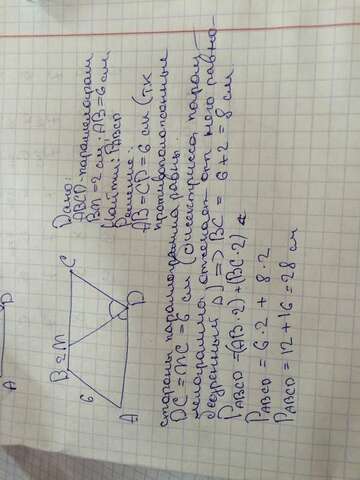 A D
B 2 M C
6
A D
Дано:
ABCD-параллелограмм
BM = 2 см; AB = 6 см
Найти: PABCD
Решение:
AB = CD = 6 см (т.к
противоположные
стороны параллелограмма равны.
DC = MC = 6 см (биссектриса парал-
лелограмма отсекает от него равно-
бедренный Δ) => BC = 6+2 = 8 см
PABCD = (AB·2) + (BC·2)
PABCD = 6·2 + 8·2
PABCD = 12 + 16 = 28 см